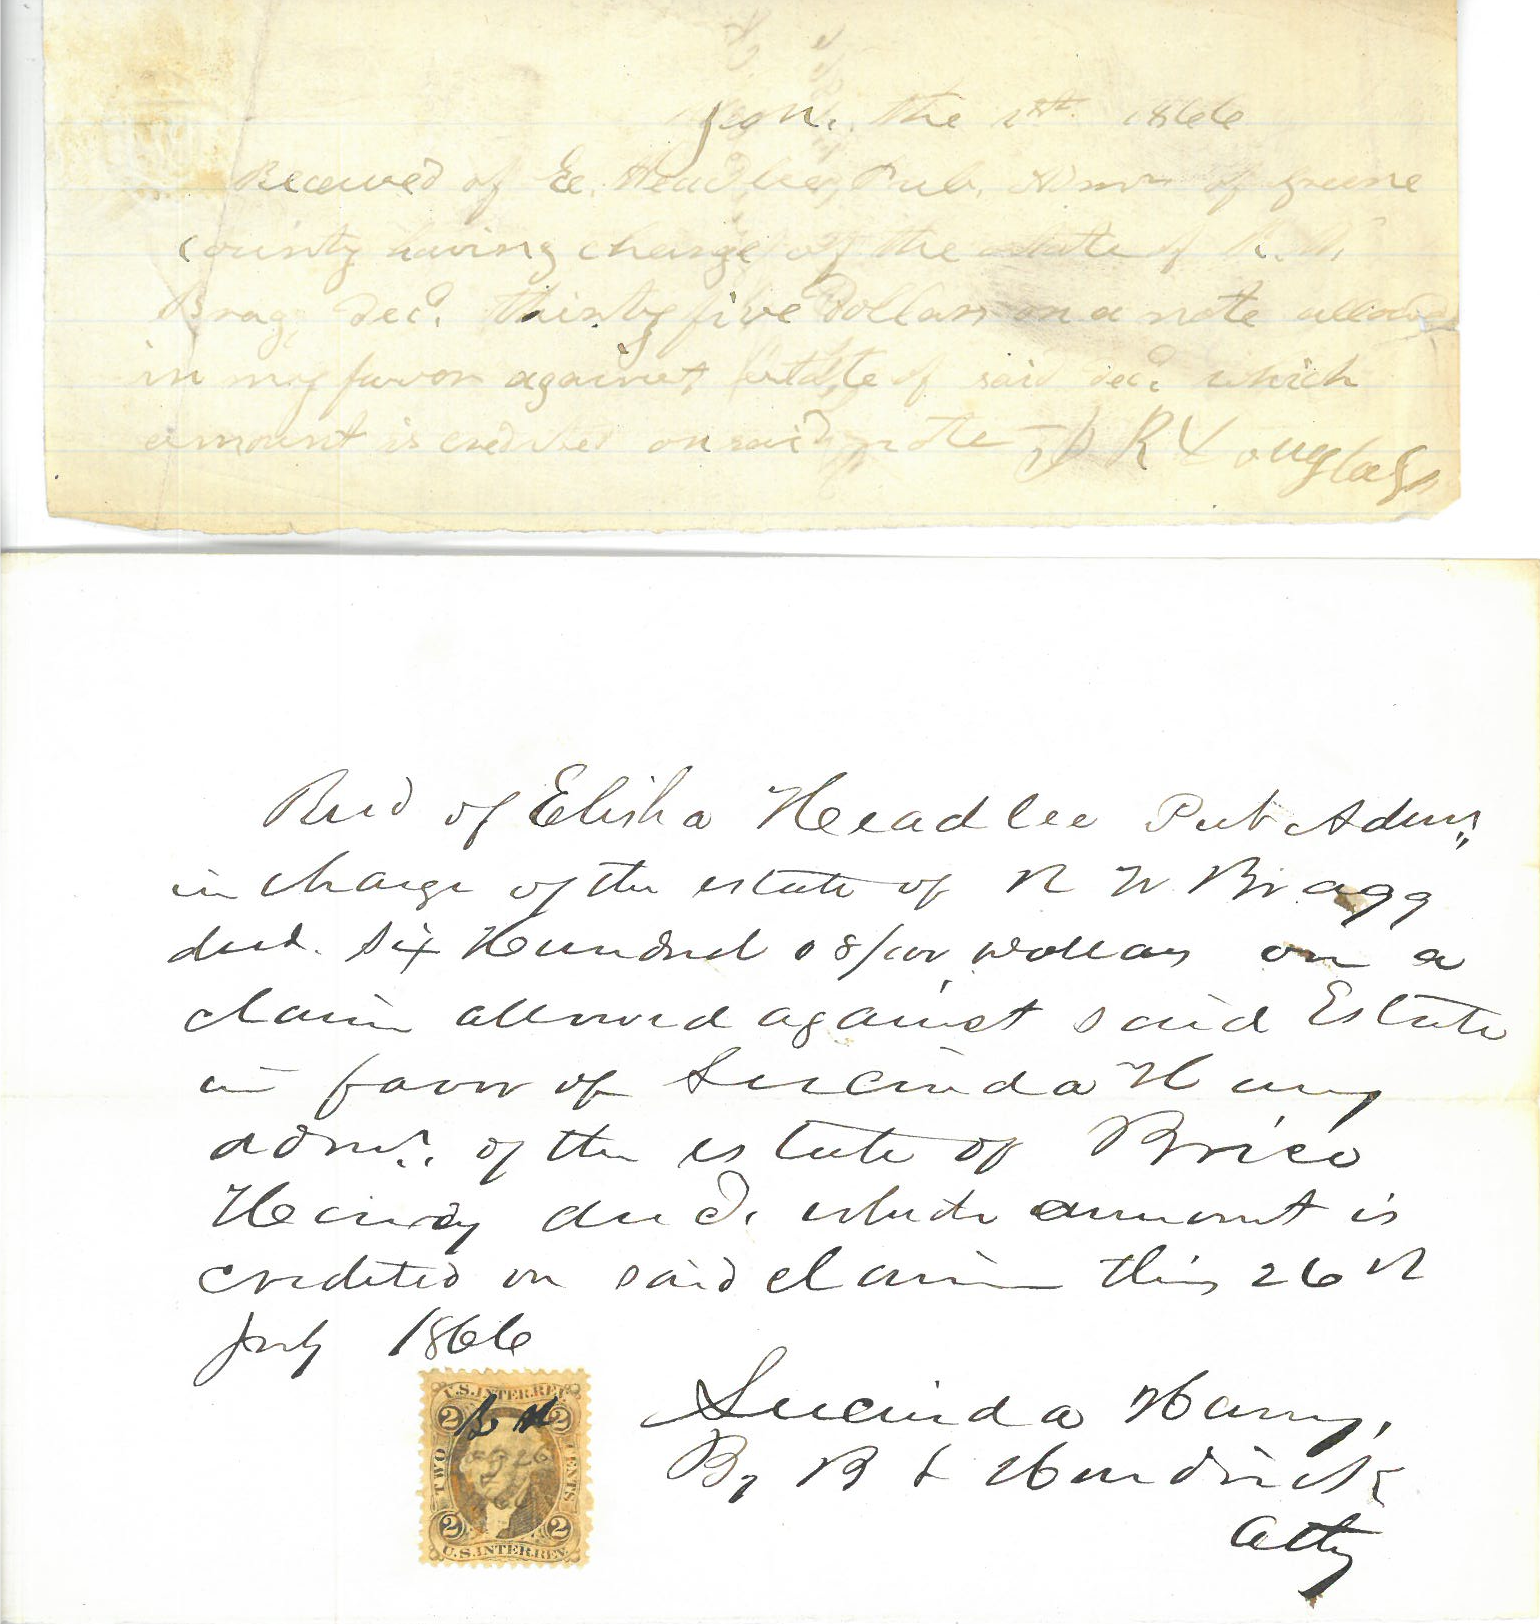 Jan. the 1st 1866
Received of E. Headlee, Pub. Admr of Greene
county having charge of the estate of R. W.
Brag, decd. thirty five Dollars on a note allowed
in my favor against Estate of said decd. which
amount is credited on said note J R Douglass
Recd of Elisha Headlee Pub Admr,,
in charge of the estate of R W Bragg
decd. Six Hundred 08/100 Dollars on a
claim allowed against said Estate
in favor of Lucinda
admr. of the estate of Brice
decd. which amount is
credited on said claim this 26th
July 1866
Lucinda
By B L Hendrick
Atty
U.S. INTER. REV.
2 B H 2
TWO CENTS
2 2
U.S. INTER. REV.